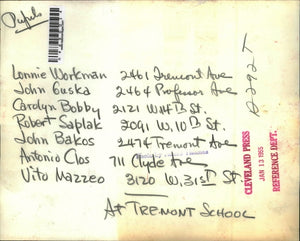 Pupils
Lonnie Workman 2461 Tremont Ave
John Guska 2464 Professor Ave
Carolyn Bobby 2121 W.14th St.
Robert Saplak 2091 W.10th St.
John Bakos 2474 Tremont Ave
Antonio Clos 711 Clyde Ave
Vito Mazzeo 3120 W.31st St.
At TREMONT SCHOOL
A292T
CLEVELAND PRESS
JAN 13 1955
REFERENCE DEPT.